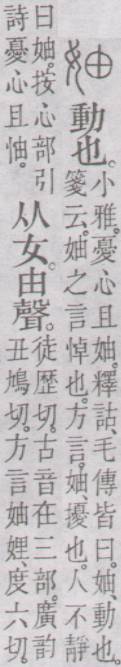 妯
動也。
小雅。憂心且妯。釋詁、毛傳皆曰。妯、動也。
箋云。妯之言悼也。方言。妯、擾也。人不靜
曰妯。按心部引
詩憂心且怞。
从女。由聲。
徒歷切。古音在三部。廣韵
丑鳩切。方言妯娌、度六切。